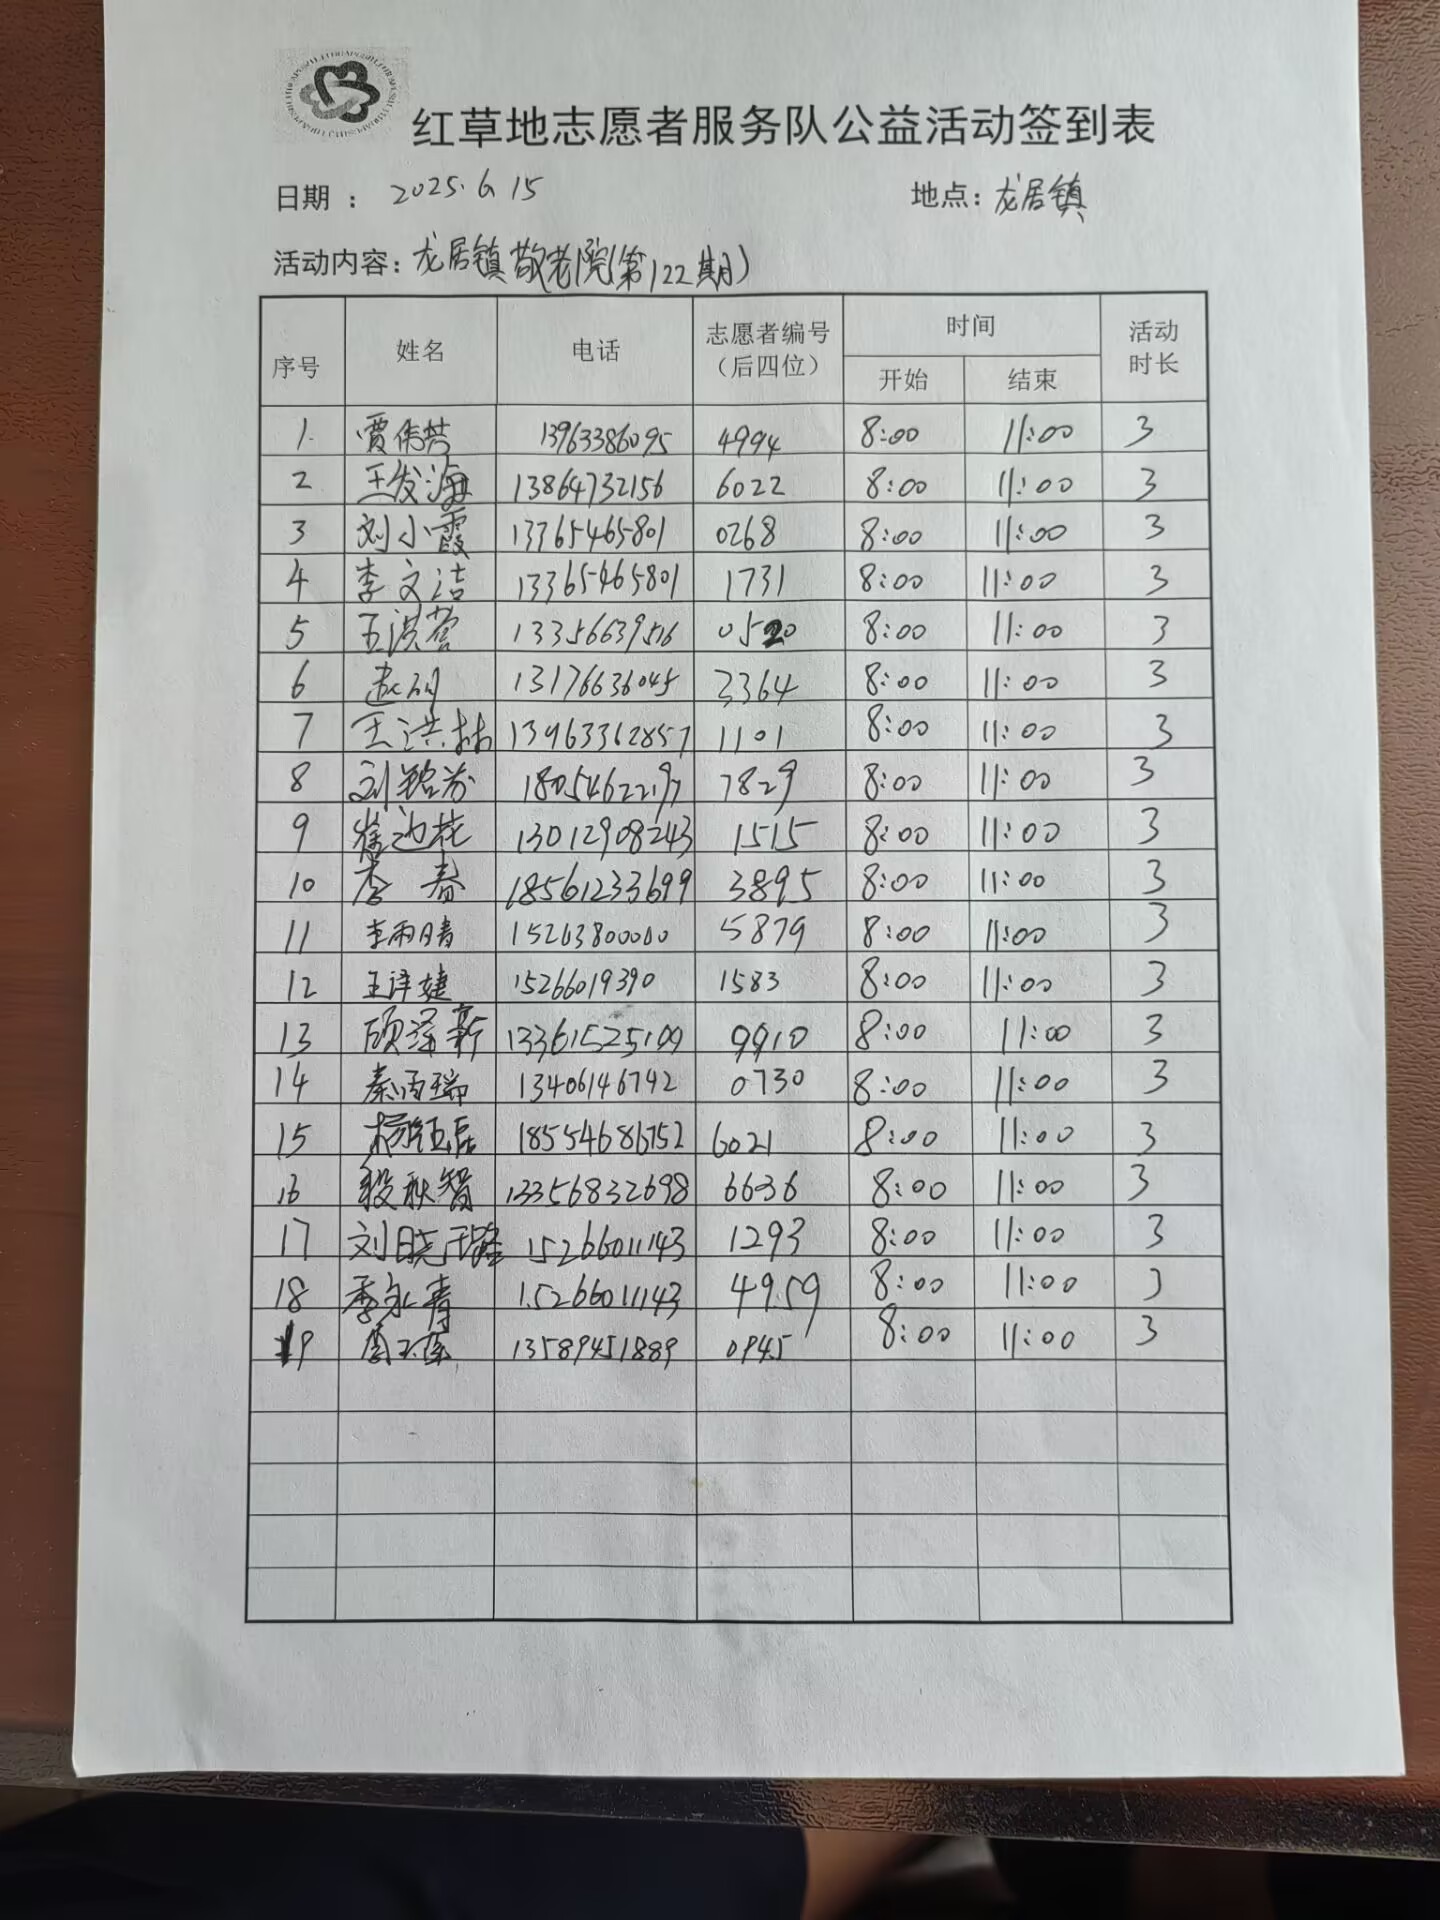 红草地志愿者服务队公益活动签到表
日期： 2025.6.15 地点：龙居镇
活动内容：龙居镇敬老院(第122期)
序号 姓名 电话 志愿者编号（后四位） 时间 开始 结束 活动时长
1. 贾伟芳 13963386095 4994 8:00 11:00 3
2 王发海 13864732156 6022 8:00 11:00 3
3 刘小霞 13365465801 0268 8:00 11:00 3
4 李文洁 13365465801 1731 8:00 11:00 3
5 王洪营 13356639516 0520 8:00 11:00 3
6 13176636045 3364 8:00 11:00 3
7 王洪林 13963362857 1101 8:00 11:00 3
8 刘铭芬 18054622197 7829 8:00 11:00 3
9 崔迎花 13012908243 1515 8:00 11:00 3
10 李春 18561233699 3895 8:00 11:00 3
11 李雨晴 15263800000 5879 8:00 11:00 3
12 王译婕 15266019390 1583 8:00 11:00 3
13 顾泽新 13361525199 9910 8:00 11:00 3
14 秦丙瑞 13406146742 0730 8:00 11:00 3
15 杨钰磊 18554686752 6021 8:00 11:00 3
16 秋智 13356832698 6636 8:00 11:00 3
17 刘晓璐 15266011143 1293 8:00 11:00 3
18 李永青 15266011143 4959 8:00 11:00 3
19 13589451889 0945 8:00 11:00 3